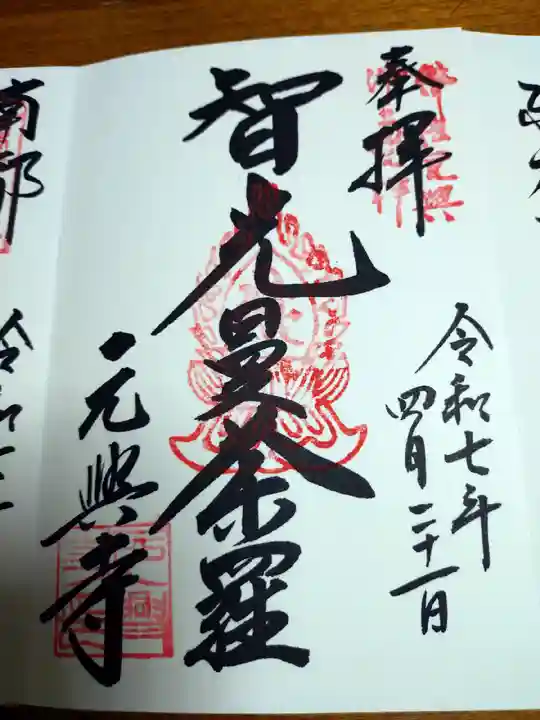 奉拝
令和七年
四月二十一日
智光曼荼羅
元興寺
南部
令和